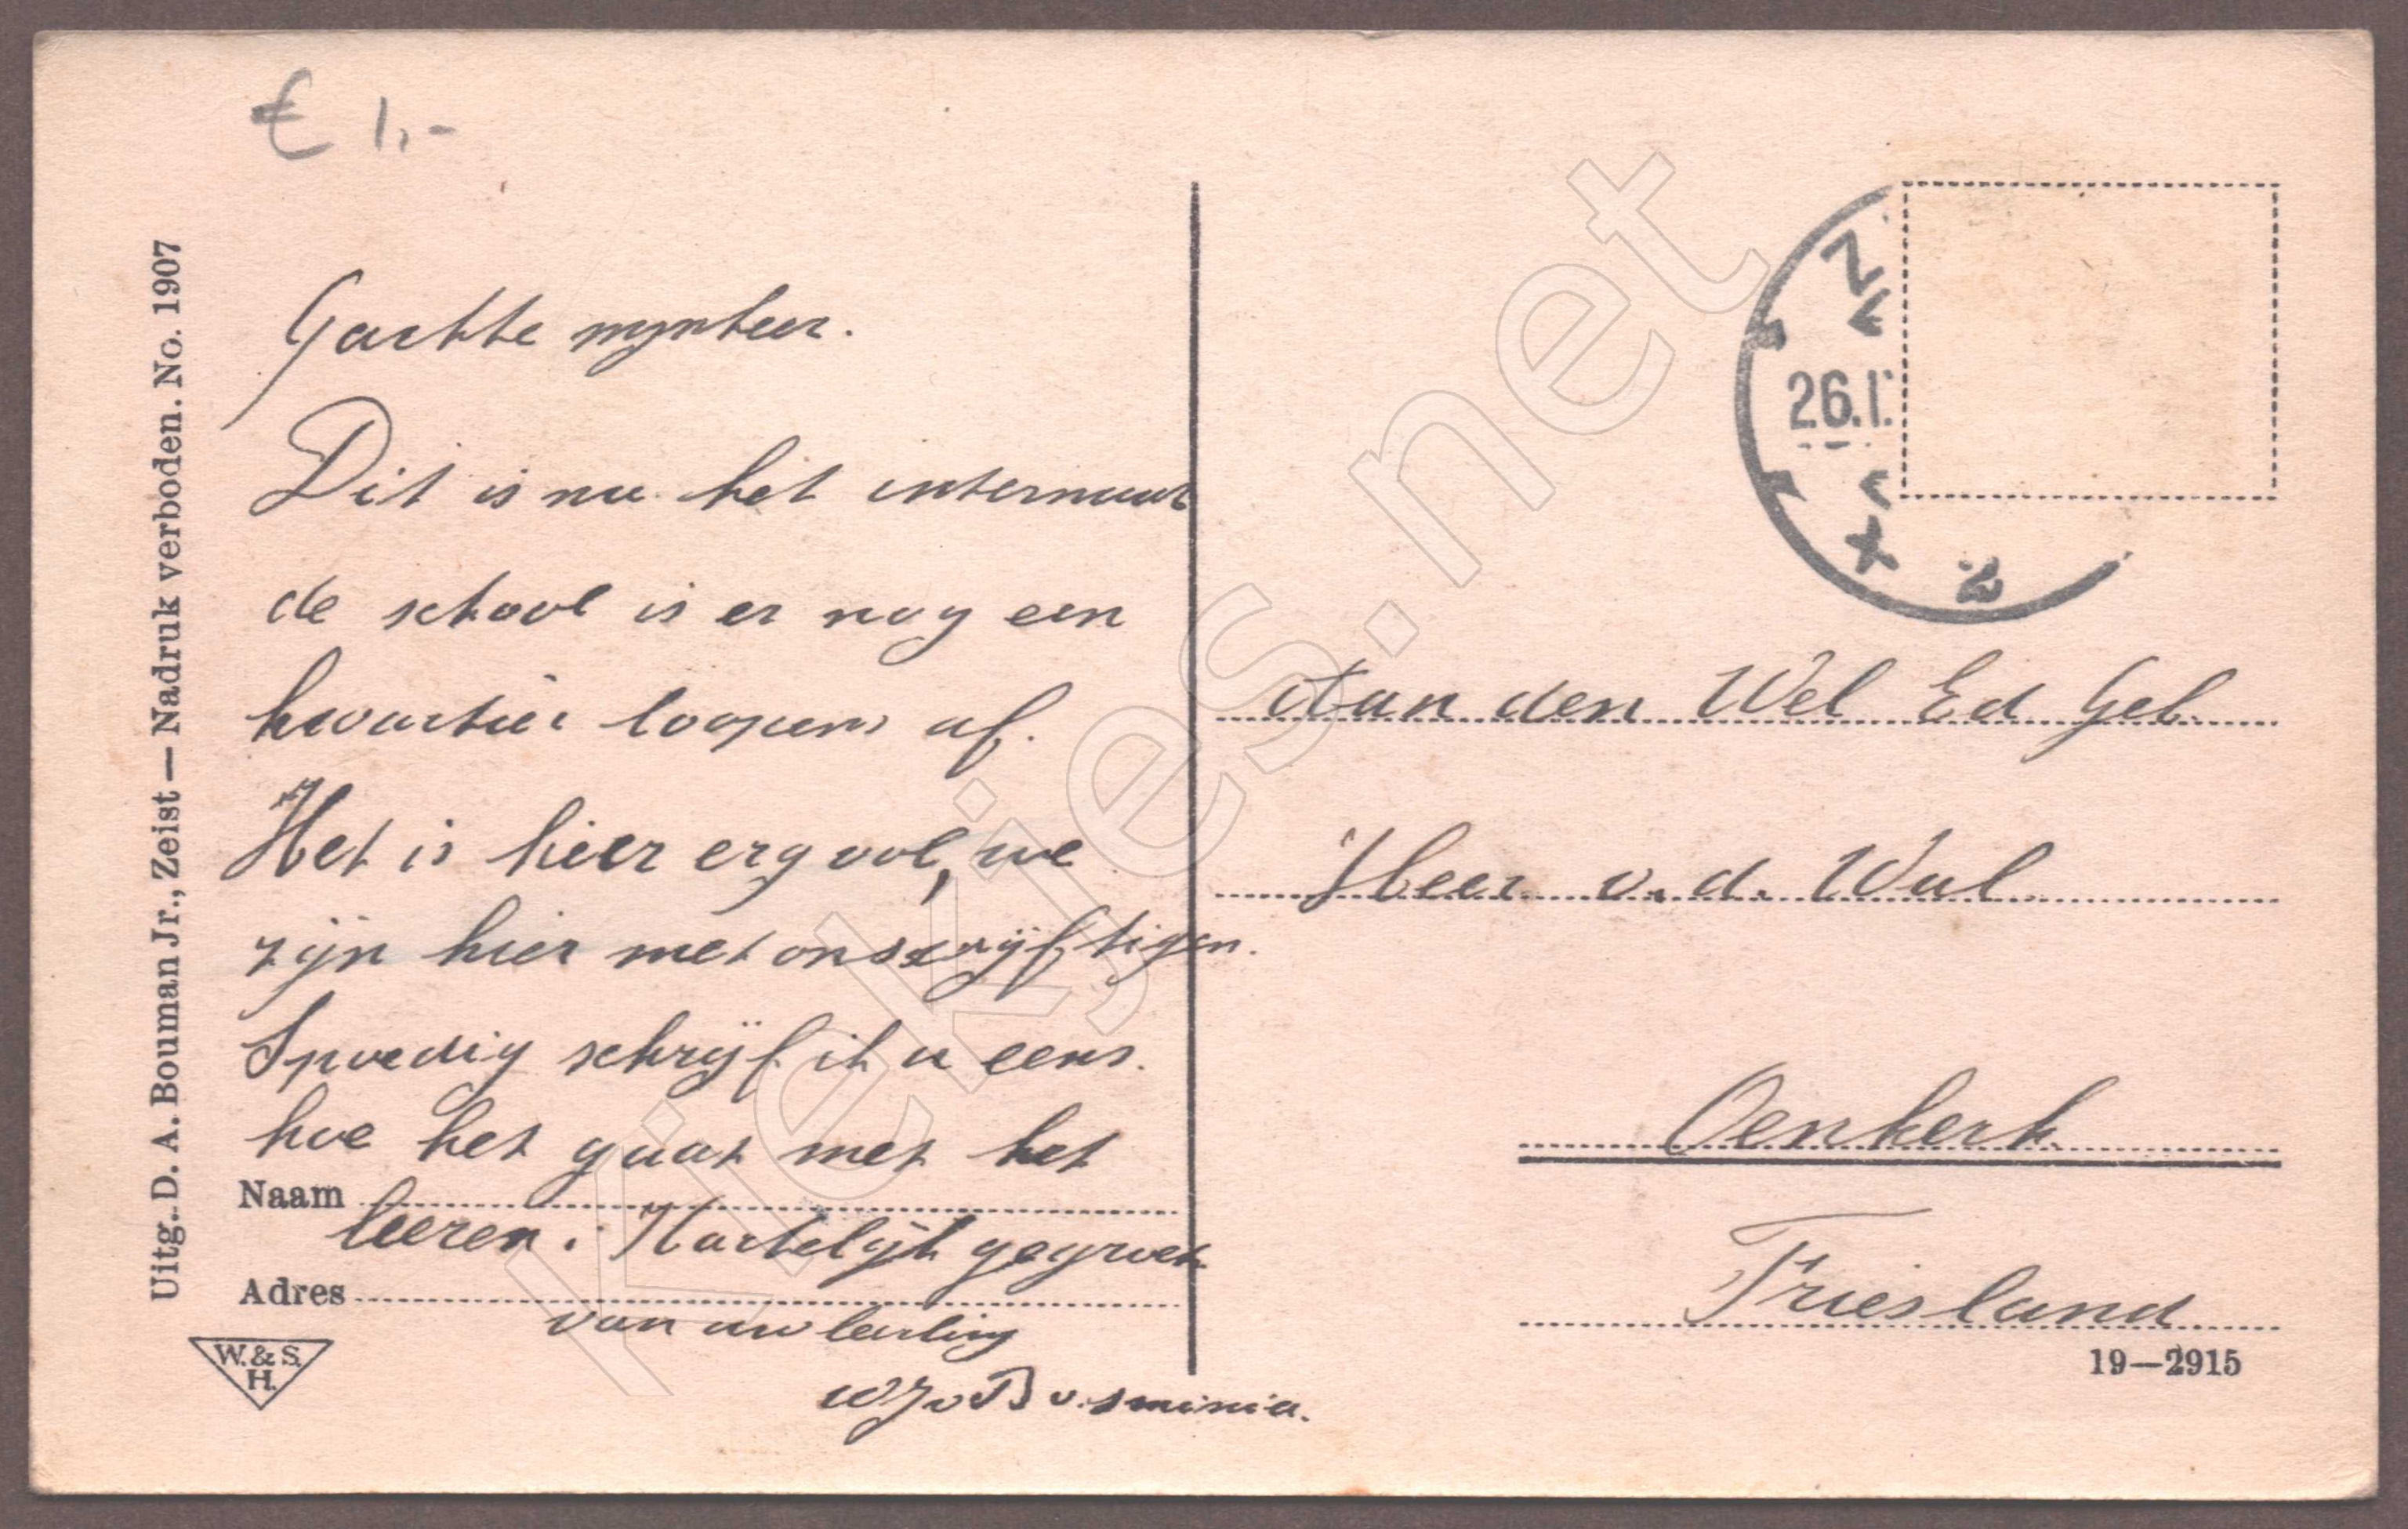 € 1,-
Uitg. D. A. Bouman Jr., Zeist — Nadruk verboden. No. 1907
Gachte mynheer.
Dit is nu het internaat
de school is er nog een
kwartier loopens af.
Het is hier erg vol, we
zijn hier met ons vijftigen.
Spoedig schrijf ik u eens.
hoe het gaat met het
Naam
leeren. Hartelijk gegroet
Adres
van uw leerling
v. Sminia.
W. & S.
H.
26.I
Aan den Wel Ed Geb.
Heer v. d. Wal
Oenkerk
Friesland
19—2915
kiekjes.net